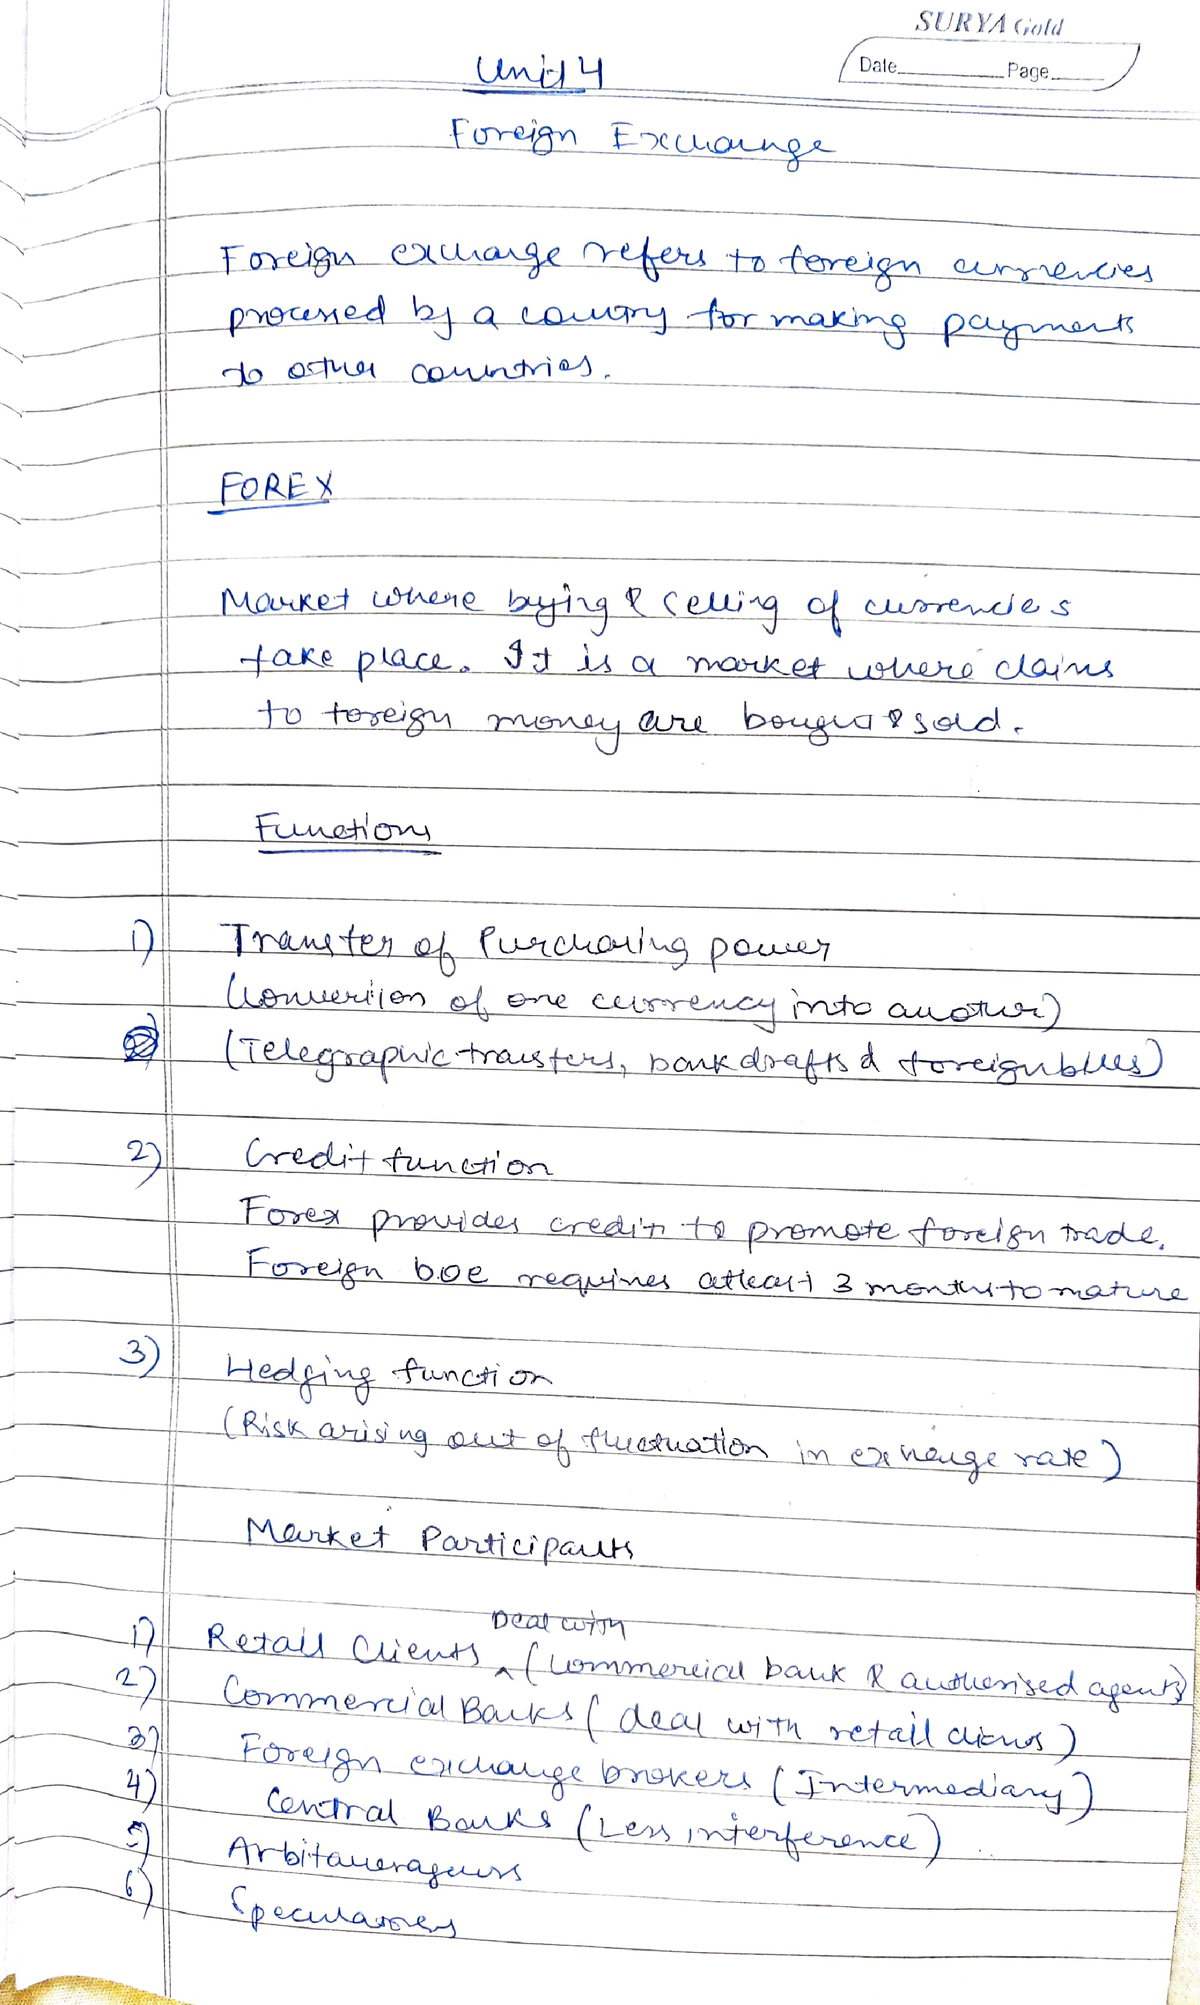 SURYA Gold
Date Page
Unit 4
Foreign Exchange
Foreign exchange refers to foreign currencies
processed by a country for making payments
to other countries.
FOREX
Market where buying & selling of currencies
take place. It is a market where claims
to foreign money are bought & sold.
Functions
1) Transfer of Purchasing power
(Conversion of one currency into another)
(Telegraphic transfers, bank drafts & foreign bills)
2) Credit function
Forex provides credit to promote foreign trade.
Foreign b.o.e requires atleast 3 months to mature
3) Hedging function
(Risk arising out of fluctuation in exchange rate)
Market Participants
Deal with
1) Retail Clients ^ (Commercial bank & authorised agents)
2) Commercial Banks (deal with retail clients)
3) Foreign exchange brokers (Intermediary)
4) Central Banks (Less interference)
5)
6) Speculators